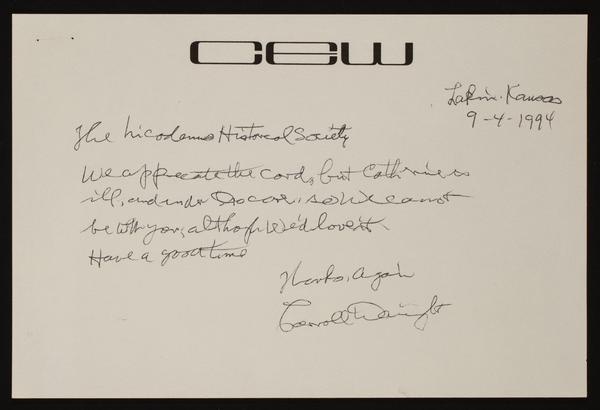 CEW
Lakin. Kansas
9-4-1994
The Nicodemus Historical Society
We apprecate the card, but Cathrine is
ill, and under Drs care, so We canot
be with you, although We'd love it.
Have a good time
Thanks, Again
Carroll